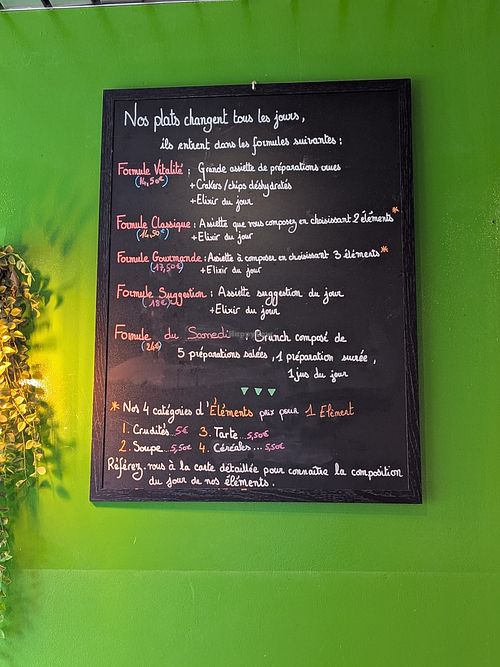 Nos plats changent tous les jours,
ils entrent dans les formules suivantes :
Formule Vitalité : Grande assiette de préparations crues
(14,50€) + Crakers / chips déshydratés
+ Elixir du jour
Formule Classique : Assiette que vous composez en choisissant 2 éléments*
(14,50€) + Elixir du jour
Formule Gourmande : Assiette à composer en choisissant 3 éléments*
(17,50€) + Elixir du jour
Formule Suggestion : Assiette suggestion du jour
(18€) + Elixir du jour
Formule du Samedi : Brunch composé de
(24€) 5 préparations salées, 1 préparation sucrée,
1 jus du jour
* Nos 4 catégories d'Éléments prix pour 1 Elément
1. Crudités...5€ 3. Tarte...5,50€
2. Soupe...5,50€ 4. Céréales...5,50€
Référez-vous à la carte détaillée pour connaître la composition
du jour de nos éléments.